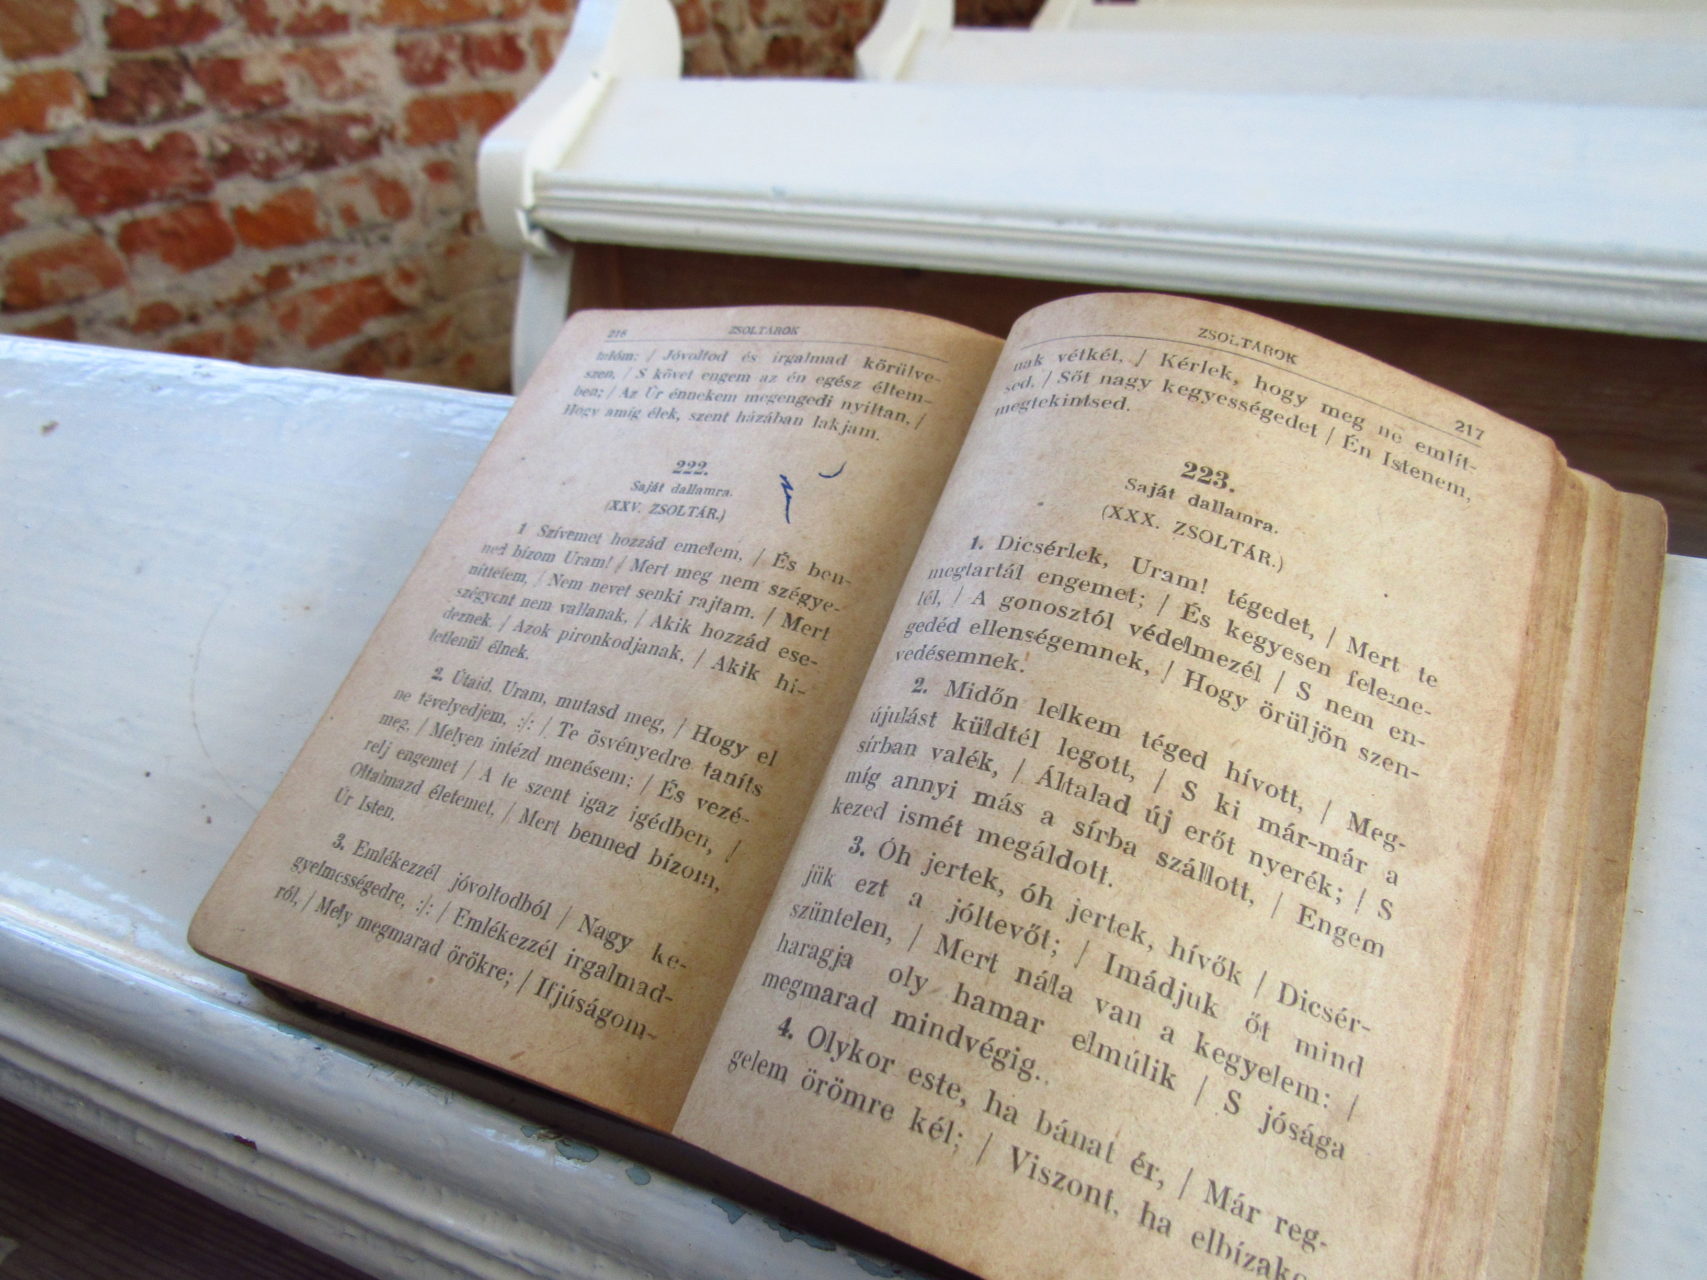 216 ZSOLTÁROK
telóm; / Jóvoltod és irgalmad körülve-
szen, / S követ engem az én egész éltem-
ben; / Az Úr énnekem megengedi nyiltan, /
Hogy amíg élek, szent házában lakjam.
222.
Saját dallamra.
(XXV. ZSOLTÁR.)
1 Szívemet hozzád emelem, / És ben-
ned bízom Uram! / Mert meg nem szégye-
níttetem, / Nem nevet senki rajtam. / Mert
szégyent nem vallanak, / Akik hozzád ese-
deznek. / Azok pironkodjanak, / Akik hi-
tetlenül élnek.
2. Útaid, Uram, mutasd meg, / Hogy el
ne tévelyedjem, :/: / Te ösvényedre taníts
meg, / Melyen intézd menésem: / És vezé-
relj engemet / A te szent igaz igédben, /
Oltalmazd életemet, / Mert benned bízom,
Úr Isten.
3. Emlékezzél jóvoltodból / Nagy ke-
gyelmességedre, :/: / Emlékezzél irgalmad-
ról, / Mely megmarad örökre; / Ifjúságom-
ZSOLTÁROK 217
nak vétkét, / Kérlek, hogy meg ne említ-
sed, / Sőt nagy kegyességedet / Én Istenem,
megtekintsed.
223.
Saját dallamra.
(XXX. ZSOLTÁR.)
1. Dicsérlek, Uram! tégedet, / Mert te
megtartál engemet; / És kegyesen feleme-
lél, / A gonosztól védelmezél / S nem en-
gedéd ellenségemnek, / Hogy örüljön szen-
vedésemnek.
2. Midőn lelkem téged hívott, / Meg-
újulást küldtél legott, / S ki már-már a
sírban valék, / Általad új erőt nyerék; / S
míg annyi más a sírba szállott, / Engem
kezed ismét megáldott.
3. Óh jertek, óh jertek, hívők / Dicsér-
jük ezt a jóltevőt; / Imádjuk őt mind
szüntelen, / Mert nála van a kegyelem: /
haragja oly hamar elmúlik / S jósága
megmarad mindvégig.
4. Olykor este, ha bánat ér, / Már reg-
gelem örömre kél; / Viszont, ha elbízak